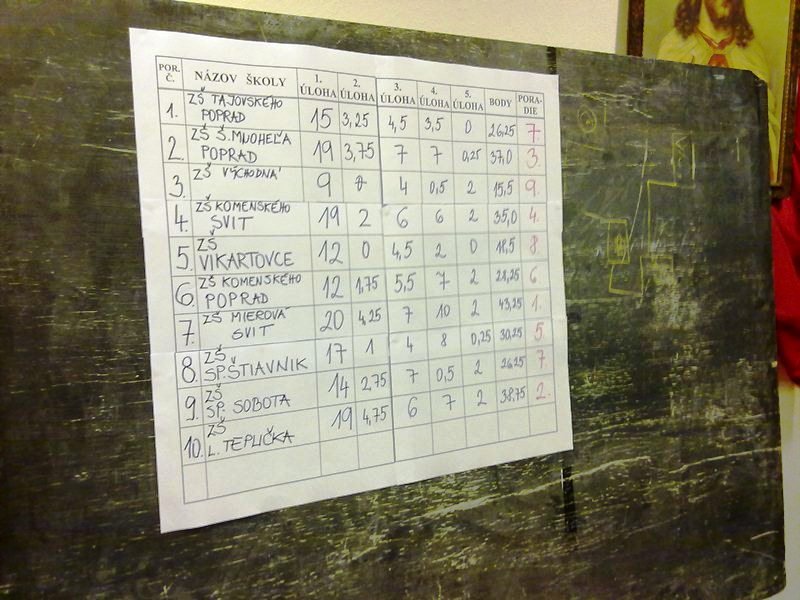 POR. Č. NÁZOV ŠKOLY 1. ÚLOHA 2. ÚLOHA 3. ÚLOHA 4. ÚLOHA 5. ÚLOHA BODY PORA-DIE
1. ZŠ TAJOVSKÉHO POPRAD 15 3,25 4,5 3,5 0 26,25 7.
2. ZŠ Š. MNOHEĽA POPRAD 19 3,75 7 7 0,25 37,0 3.
3. ZŠ VÝCHODNÁ 9 0 4 0,5 2 15,5 9.
4. ZŠ KOMENSKÉHO SVIT 19 2 6 6 2 35,0 4.
5. ZŠ VIKARTOVCE 12 0 4,5 2 0 18,5 8.
6. ZŠ KOMENSKÉHO POPRAD 12 1,75 5,5 7 2 28,25 6
7. ZŠ MIEROVA SVIT 20 4,25 7 10 2 43,25 1.
8. ZŠ SP. ŠTIAVNIK 17 1 4 8 0,25 30,25 5.
9. ZŠ SP. SOBOTA 14 2,75 7 0,5 2 26,25 7.
10. ZŠ L. TEPLIČKA 19 4,75 6 7 2 38,75 2.